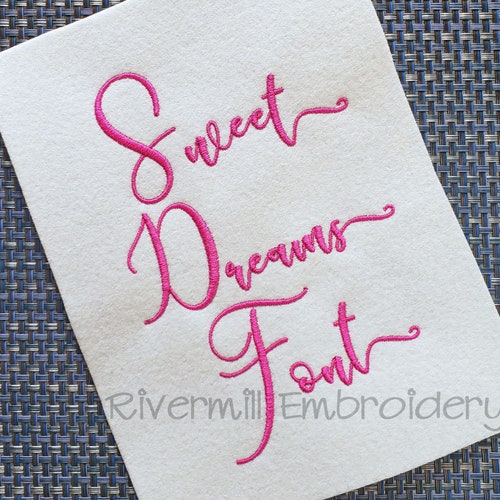 Sweet
Dreams
Font
Rivermill Embroidery